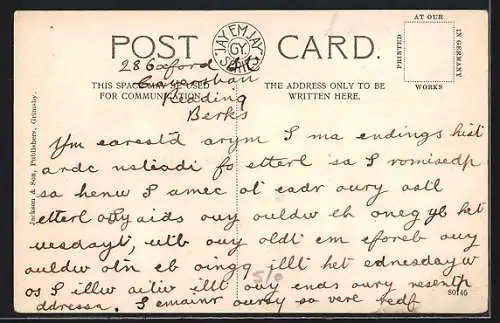 POST CARD.
JAY EM JAY
GY
SERIES
AT OUR
PRINTED
IN GERMANY
WORKS
28 Oxford St
Caversham
Reading
Berks
THIS SPACE MAY BE USED
FOR COMMUNICATION.
THE ADDRESS ONLY TO BE
WRITTEN HERE.
Jackson & Son, Publishers, Grimsby.
Ym earestd arym I ma endings hist
ardc nsteadi fo etterl sa I romisedp
sa henw I amec ot eadr oury astl
etterl ouy aids ouy ouldw eb onegg yb het
uesdayt, utb ouy oldt em eforeb ouy
ouldw otn eb oingg illt het ednesdayw
os I illw aitw illt ouy ends oury resentp
ddressa. I emainr oursy sa vere redf
5/0